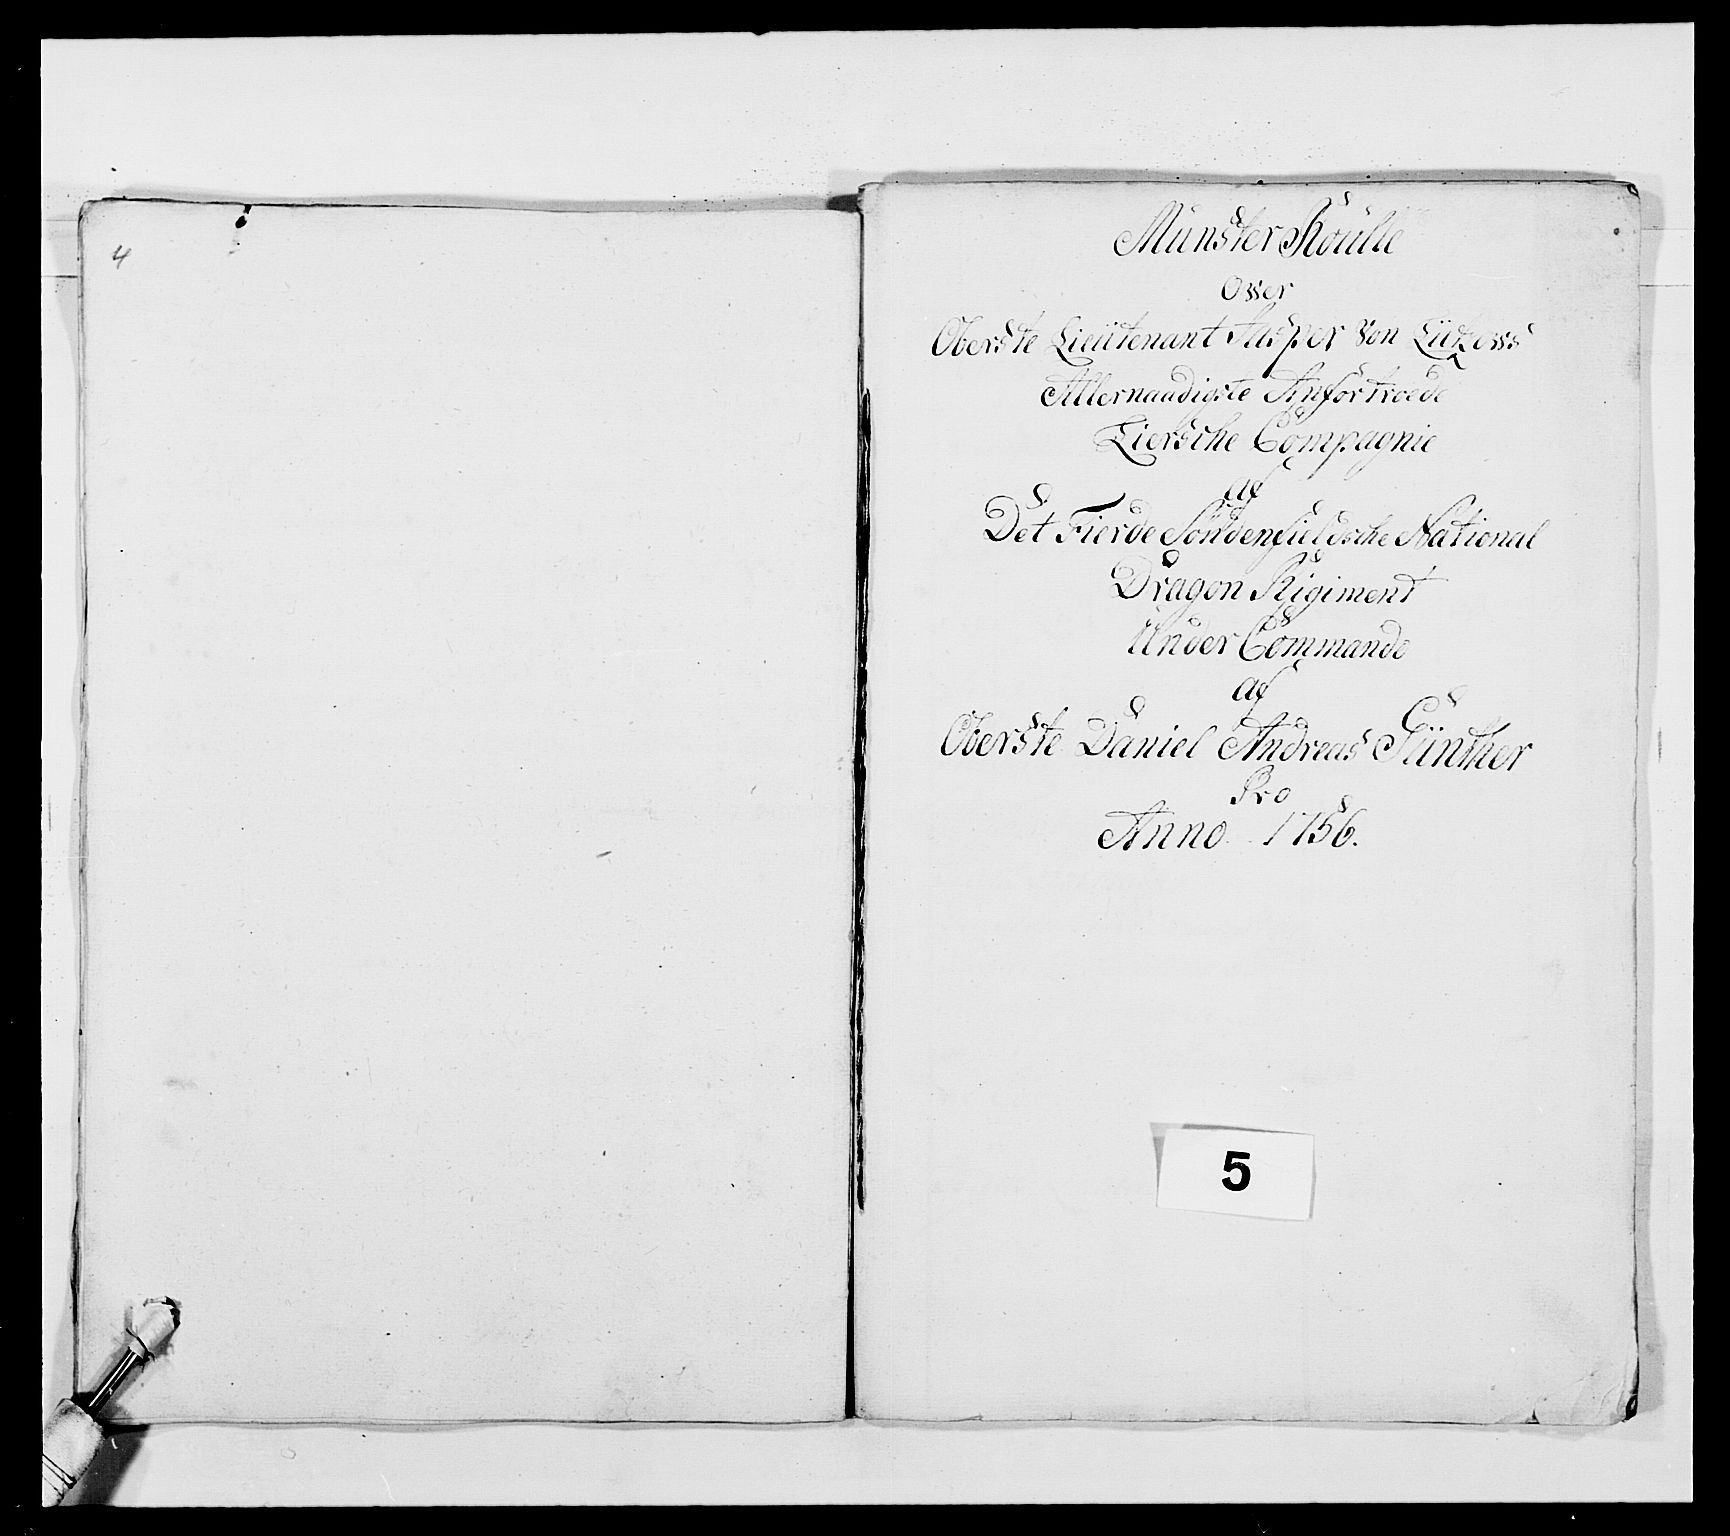 4
Münster Roulle
Over
Oberste Lieütenant Jasper Von Lützows
Allernaadigste Anfortroede
Liersche Compagnie
af
Det Fierde Söndenfieldsche National
Dragon Regiment
Under Commando
af
Oberste Daniel Andreas Günther
Pro
Anno 1756.
5